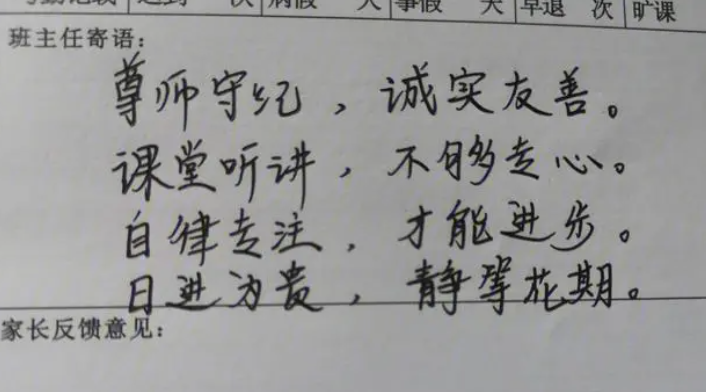 考勤记载 迟到 次 病假 天 事假 天 早退 次 旷课
班主任寄语：
尊师守纪，诚实友善。
课堂听讲，不够专心。
自律专注，才能进步。
日进为贵，静等花期。
家长反馈意见：